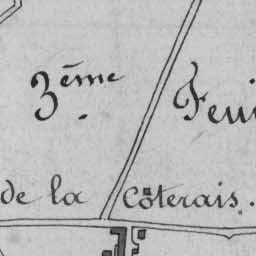 3ème Feui
de la Coterais.